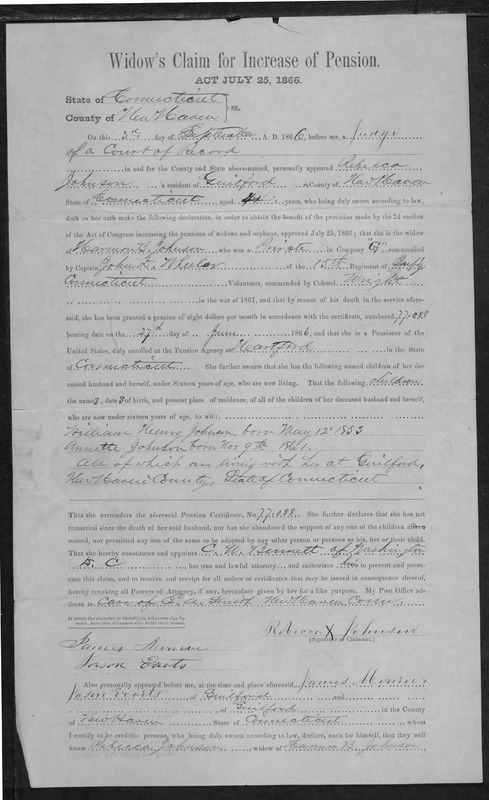 Widow's Claim for Increase of Pension.
ACT JULY 25, 1866.
State of Connecticut
County of New Haven } ss.
On this 3d day of September A. D. 1866, before me, a Judge
of a Court of Record
in and for the County and State above-named, personally appeared Rebecca
Johnson a resident of Guilford County of New Haven
State of Connecticut aged 44 years, who being duly sworn according to law,
doth on her oath make the following declaration, in order to obtain the benefit of the provision made by the 2d section
of the Act of Congress increasing the pensions of widows and orphans, approved July 25, 1866; that she is the widow
of Harmon B. Johnson who was a Private in Company "G" commanded
by Captain John A. Wheeler of the 15th Regiment of
Connecticut Volunteers, commanded by Colonel Wright
in the war of 1861, and that by reason of his death in the service afore-
said, she has been granted a pension of eight dollars per month in accordance with the certificate, numbered 77.038
bearing date on the 27th day of June 1866, and that she is a Pensioner of the
United States, duly enrolled at the Pension Agency Heartford in the State
of Connecticut She further swears that she has the following named children of her de-
ceased husband and herself, under Sixteen years of age, who are now living. That the following children
the names, dates of birth, and present place of residence, of all the children of her deceased husband and herself,
who are now under sixteen years of age, to wit:
William Henry Johnson, born May 12th 1853
Annette Johnson born Nov 9th 1861.
All of which are living with her at Guilford,
New Haven County, State of Connecticut
That she surrenders the aforesaid Pension Certificate, No. 77.038. She further declares that she has not
remarried since the death of her said husband, nor has she abandoned the support of any one of the children above
named, nor permitted any one of the same to be adopted by any other person or persons as his, her or their child.
That she hereby constitutes and appoints C. W. Bennett of Washington
D. C. , her true and lawful attorney and authorize him to present and prose-
cute this claim, and to receive and receipt for all orders or certificates that may be issued in consequence thereof,
hereby revoking all Powers of Attorney, if any, heretofore given by her for a like purpose. My Post Office ad-
dress is Care of New Haven Conn.
If unable the claimant to identify, by witnesses sign by
mark, have two witnesses who write their names.
Rebecca X Johnson
(Signature of Claimant.)
James Monroe
Jason
Also personally appeared before me, at the time and place aforesaid James Monroe
Jason of Guilford and
of Guilford in the County
of New Haven State of Connecticut whom
I certify to be credible persons, who being duly sworn according to law, declare, each for himself, that they well
know Rebecca Johnson widow of Harmon B. Johnson